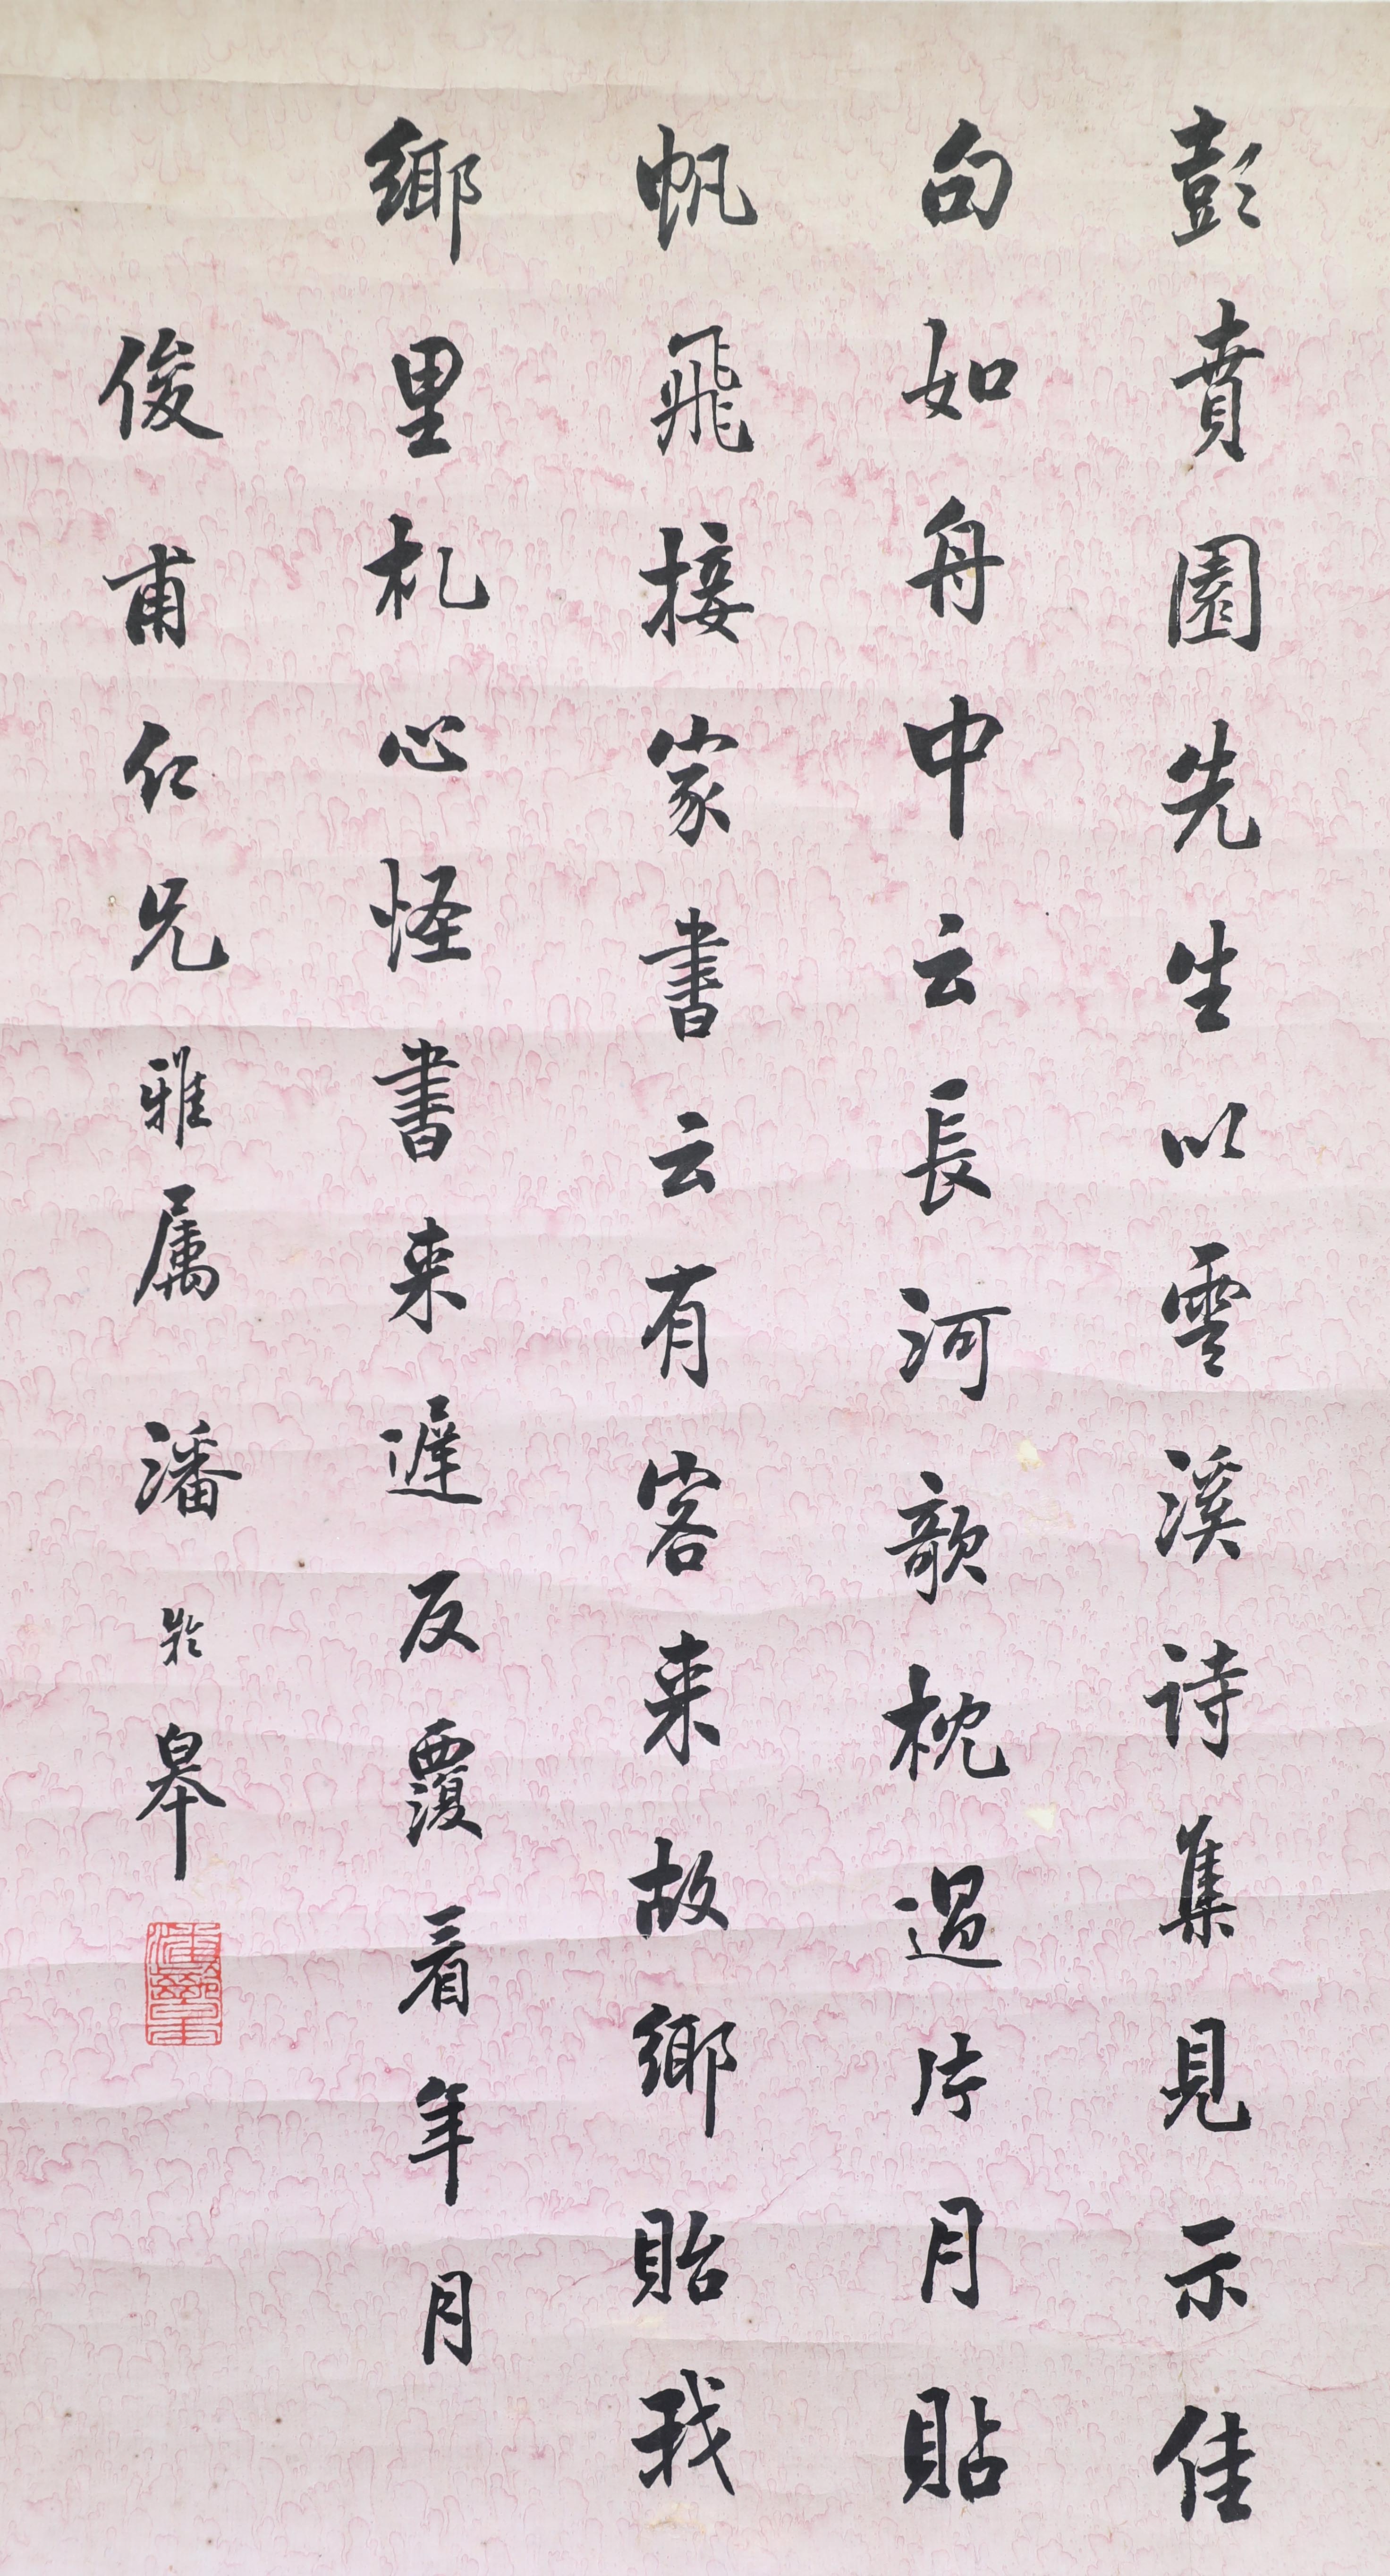 彭賁園先生以雲溪诗集見示佳
句如舟中云長河歌枕過片月貼
帆飛接家書云有客来故鄉貽我
鄉里札心怪書来遲反覆看年月
俊甫仁兄雅属 潘齡皋